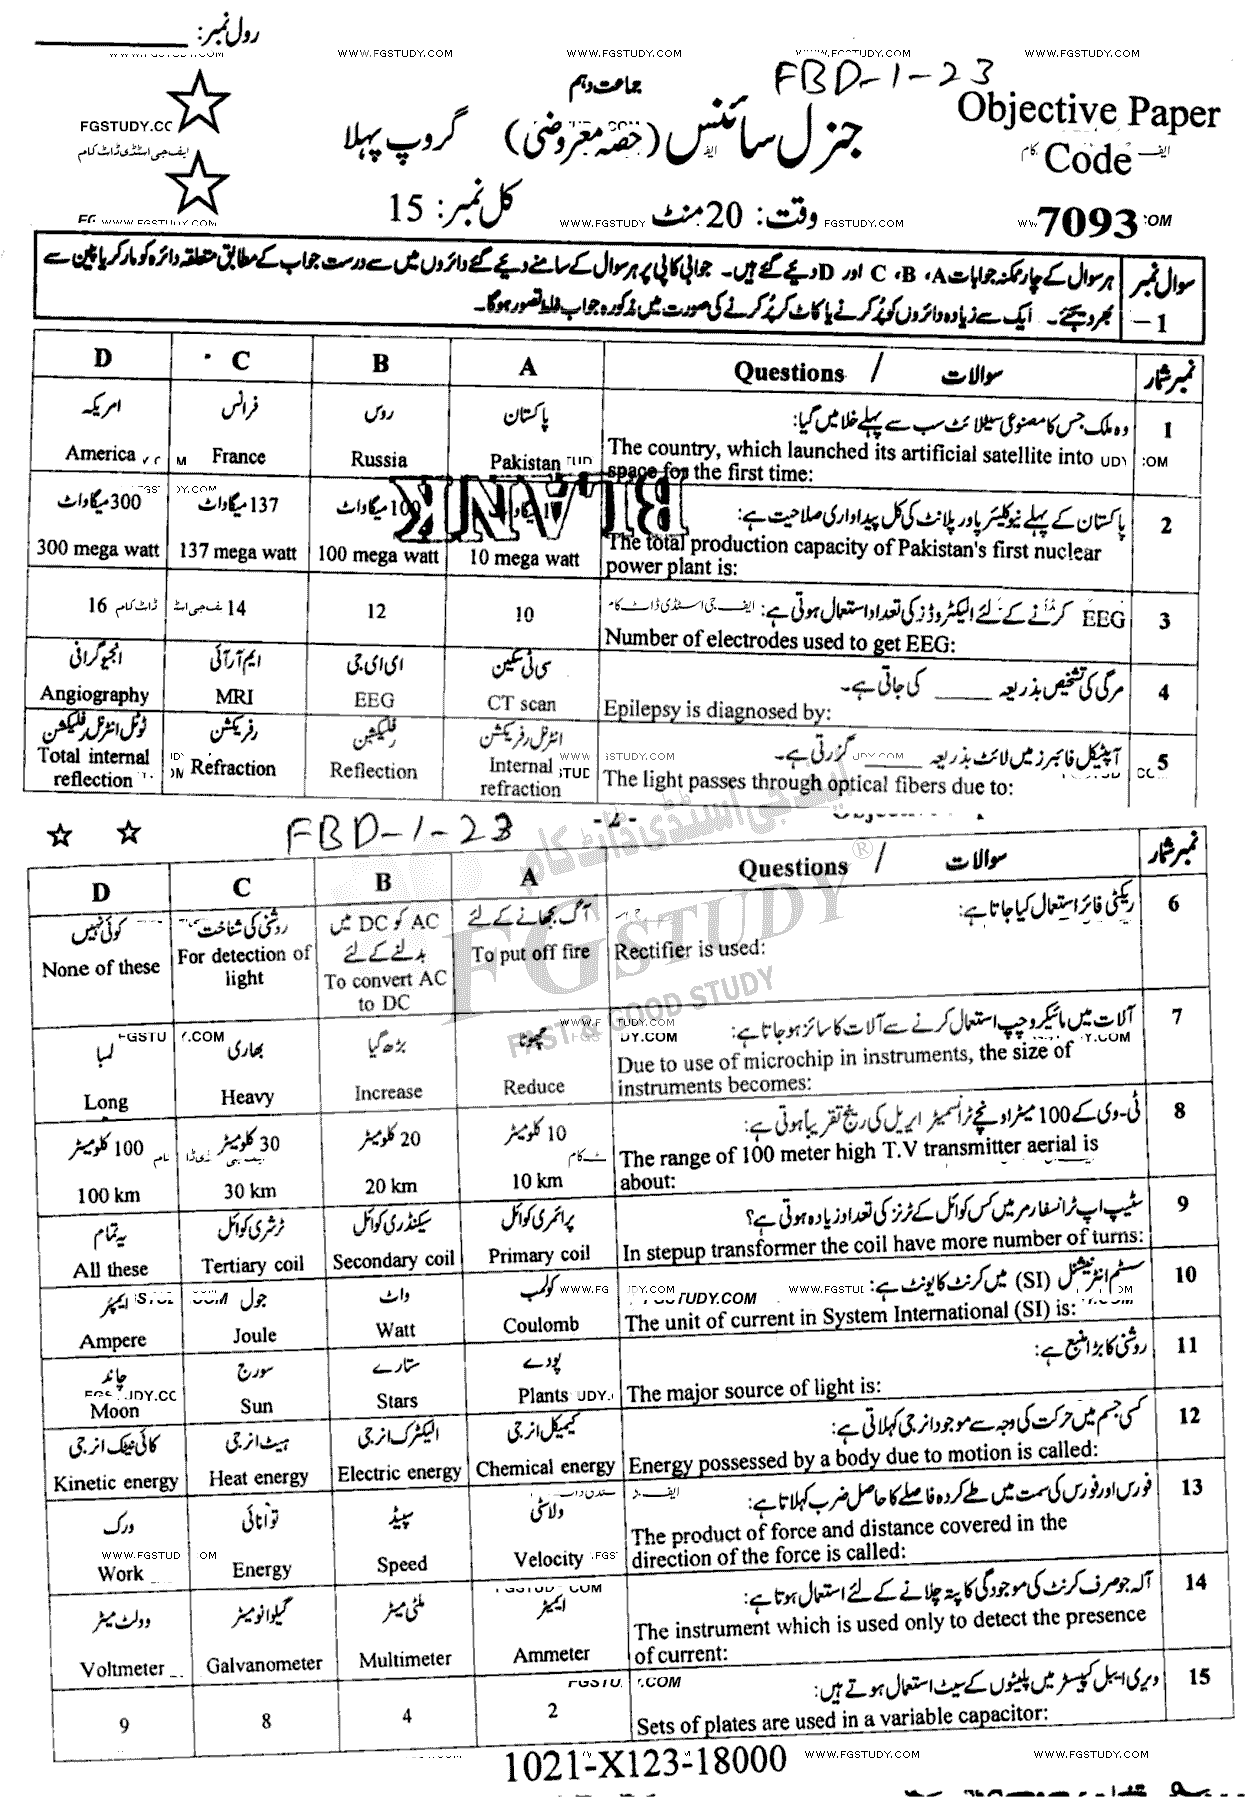 رول نمبر: ____________
WWW.FGSTUDY.COM WWW.FGSTUDY.COM WWW.FGSTUDY.COM WWW.FGSTUDY.COM WWW.FGSTUDY.COM
جماعت دہم
FBD-1-23
جنرل سائنس (حصہ معروضی) گروپ پہلا
Objective Paper
Code
7093
وقت: 20 منٹ
کل نمبر: 15
سوال نمبر 1-
ہر سوال کے چار ممکنہ جوابات A، B، C اور D دیئے گئے ہیں۔ جوابی کاپی پر ہر سوال کے سامنے دیئے گئے دائروں میں سے درست جواب کے مطابق متعلقہ دائرہ کو مارکر یا پین سے
بھر دیجئے۔ ایک سے زیادہ دائروں کو پُر کرنے یا کاٹ کر پُر کرنے کی صورت میں مذکورہ جواب غلط تصور ہوگا۔
نمبر شمار سوالات / Questions A B C D
1 وہ ملک جس کا مصنوعی سیٹلائٹ سب سے پہلے خلا میں گیا:
The country, which launched its artificial satellite into
space for the first time:
پاکستان روس فرانس امریکہ
Pakistan Russia France America
BLANK
2 پاکستان کے پہلے نیوکلیئر پاور پلانٹ کی کل پیداواری صلاحیت ہے:
The total production capacity of Pakistan's first nuclear
power plant is:
میگاواٹ 100 میگاواٹ 137 میگاواٹ 300 میگاواٹ
10 mega watt 100 mega watt 137 mega watt 300 mega watt
3 EEG کرنے کے لئے الیکٹروڈز کی تعداد استعمال ہوتی ہے:
Number of electrodes used to get EEG:
10 12 14 16
4 مرگی کی تشخیص بذریعہ _____ کی جاتی ہے۔
Epilepsy is diagnosed by:
سی ٹی سکین ای ای جی ایم آر آئی انجیوگرافی
CT scan EEG MRI Angiography
5 آپٹیکل فائبرز میں لائٹ بذریعہ _____ گزرتی ہے۔
The light passes through optical fibers due to:
انٹرنل رفریکشن رفلیکشن رفریکشن ٹوٹل انٹرنل رفلیکشن
Internal refraction Reflection Refraction Total internal reflection
FBD-1-23
-2-
نمبر شمار سوالات / Questions A B C D
6 ریکٹی فائر استعمال کیا جاتا ہے:
Rectifier is used:
آگ بجھانے کے لئے AC کو DC میں بدلنے کے لئے روشنی کی شناخت کوئی نہیں
To put off fire To convert AC to DC For detection of light None of these
7 آلات میں مائیکروچپ استعمال کرنے سے آلات کا سائز ہو جاتا ہے:
Due to use of microchip in instruments, the size of
instruments becomes:
چھوٹا بڑھ گیا بھاری لمبا
Reduce Increase Heavy Long
8 ٹی۔وی کے 100 میٹر اونچے ٹرانسمیٹر ایریل کی رینج تقریباً ہوتی ہے:
The range of 100 meter high T.V transmitter aerial is
about:
10 کلومیٹر 20 کلومیٹر 30 کلومیٹر 100 کلومیٹر
10 km 20 km 30 km 100 km
9 سٹیپ اپ ٹرانسفارمر میں کس کوائل کے ٹرنز کی تعداد زیادہ ہوتی ہے؟
In stepup transformer the coil have more number of turns:
پرائمری کوائل سیکنڈری کوائل ٹرشری کوائل یہ تمام
Primary coil Secondary coil Tertiary coil All these
10 سسٹم انٹرنیشنل (SI) میں کرنٹ کا یونٹ ہے:
The unit of current in System International (SI) is:
کولمب واٹ جول ایمپئر
Coulomb Watt Joule Ampere
11 روشنی کا بڑا منبع ہے:
The major source of light is:
پودے ستارے سورج چاند
Plants Stars Sun Moon
12 کسی جسم میں حرکت کی وجہ سے موجود انرجی کہلاتی ہے:
Energy possessed by a body due to motion is called:
کیمیکل انرجی الیکٹرک انرجی ہیٹ انرجی کائی نیٹک انرجی
Chemical energy Electric energy Heat energy Kinetic energy
13 فورس اور فورس کی سمت میں طے کردہ فاصلے کا حاصل ضرب کہلاتا ہے:
The product of force and distance covered in the
direction of the force is called:
ولاسٹی سپیڈ توانائی ورک
Velocity Speed Energy Work
14 آلہ جو صرف کرنٹ کی موجودگی کا پتہ چلانے کے لئے استعمال ہوتا ہے:
The instrument which is used only to detect the presence
of current:
ایمیٹر ملٹی میٹر گیلوانومیٹر وولٹ میٹر
Ammeter Multimeter Galvanometer Voltmeter
15 ویری ایبل کپیسٹر میں پلیٹوں کے سیٹ استعمال ہوتے ہیں:
Sets of plates are used in a variable capacitor:
2 4 8 9
1021-X123-18000
WWW.FGSTUDY.COM WWW.FGSTUDY.COM
ایف جی اسٹڈی ڈاٹ کام
FGSTUDY®
FAST & GOOD STUDY